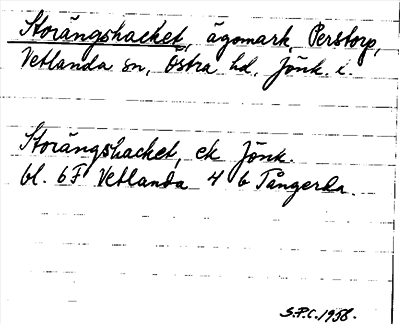 Storängshacket, ägomark, Perstorp,
Vetlanda sn, Östra hd, Jönk. l.
Storängshacket, ek Jönk.
bl. 6F Vetlanda 4 b Tångerda.
S.P.C. 1958.